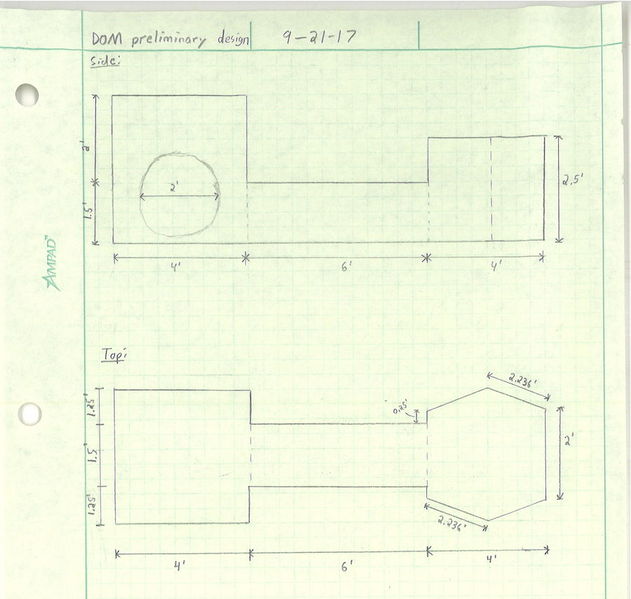 DOM preliminary design 9-21-17
Side:
2'
2'
1.5'
2.5'
4' 6' 4'
AMPAD™
Top:
2.236'
1.25'
0.25'
1.5'
2'
1.25'
2.236'
4' 6' 4'